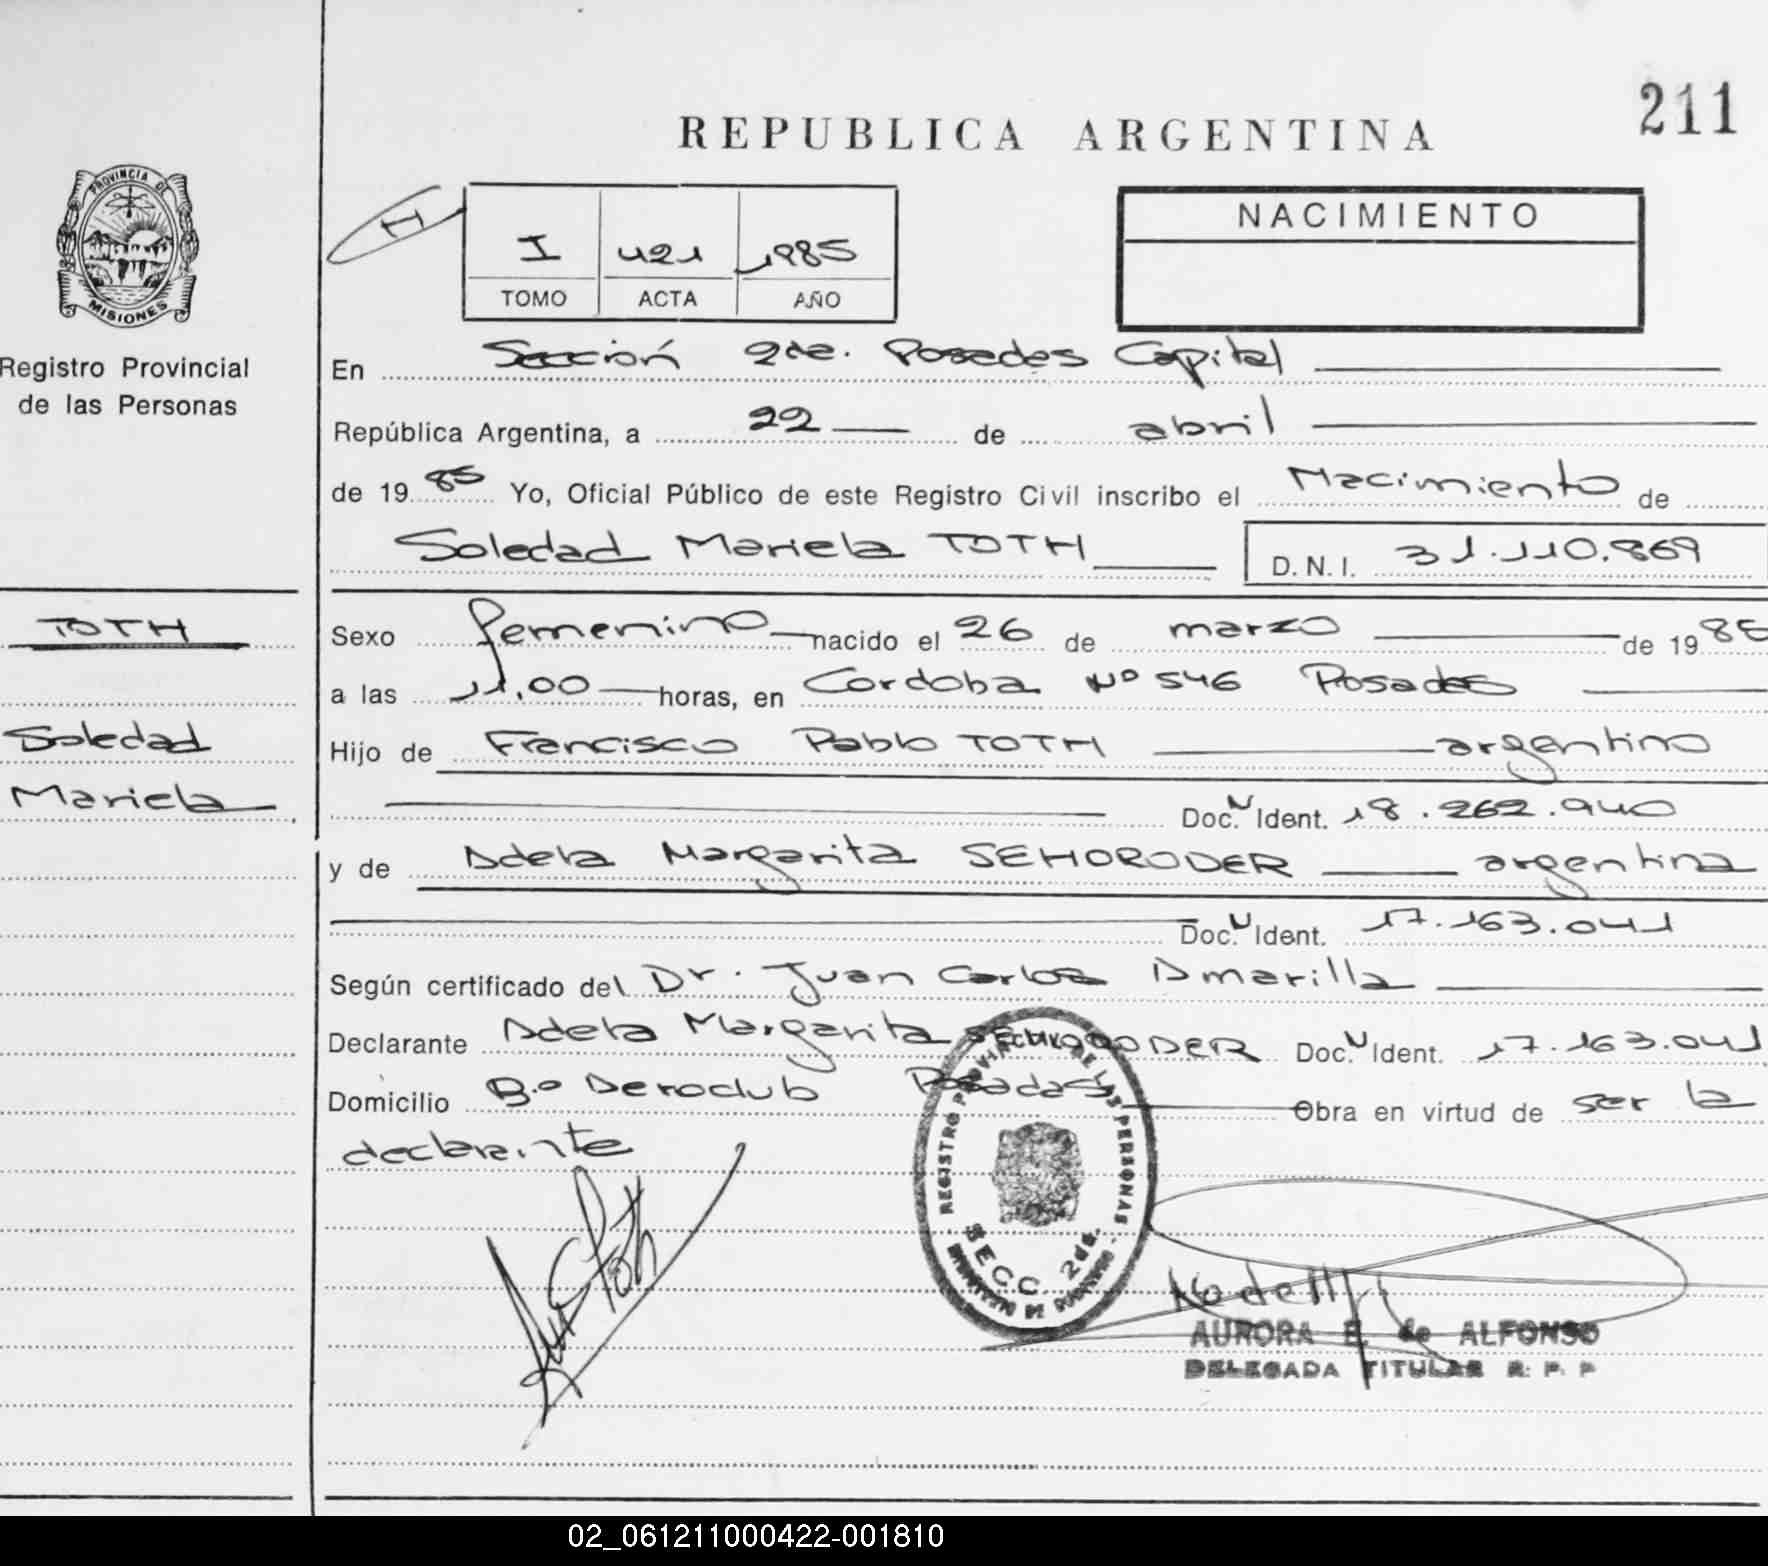 211
REPUBLICA ARGENTINA
PROVINCIA DE
MISIONES
Registro Provincial
de las Personas
I 421 1985
TOMO ACTA AÑO
NACIMIENTO
En Sección 2da. Posadas Capital
República Argentina, a 22 de abril
de 1985 Yo, Oficial Público de este Registro Civil inscribo el Nacimiento de
Soledad Mariela TOTH D.N.I. 31.110.869
TOTH
Soledad
Mariela
Sexo femenino nacido el 26 de marzo de 1985
a las 11,00 horas, en Cordoba Nº 546 Posadas
Hijo de Francisco Pablo TOTH argentino
Doc. N Ident. 18.262.940
y de Adela Margarita SEHORODER argentina
Doc. N Ident. 17.163.041
Según certificado del Dr. Juan Carlos Amarilla
Declarante Adela Margarita SEHORODER Doc. N Ident. 17.163.041
Domicilio B.º Aeroclub Posadas Obra en virtud de ser la
declarante
REGISTRO PROVINCIAL DE LAS PERSONAS
SECC. 2da.
AURORA E. de ALFONSO
DELEGADA TITULAR R. P. P
02_061211000422-001810